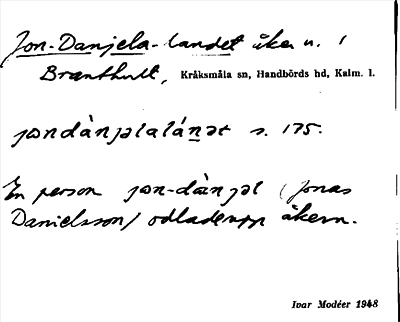 Jon-Danjela-landet åker n. i
Branthult, Kråksmåla sn, Handbörds hd, Kalm. l.
jɷndànjəlalánət s. 175.
En person jɷn-dànjəl (Jonas
Danielsson) odlade upp åkern.
Ivar Modéer 1948